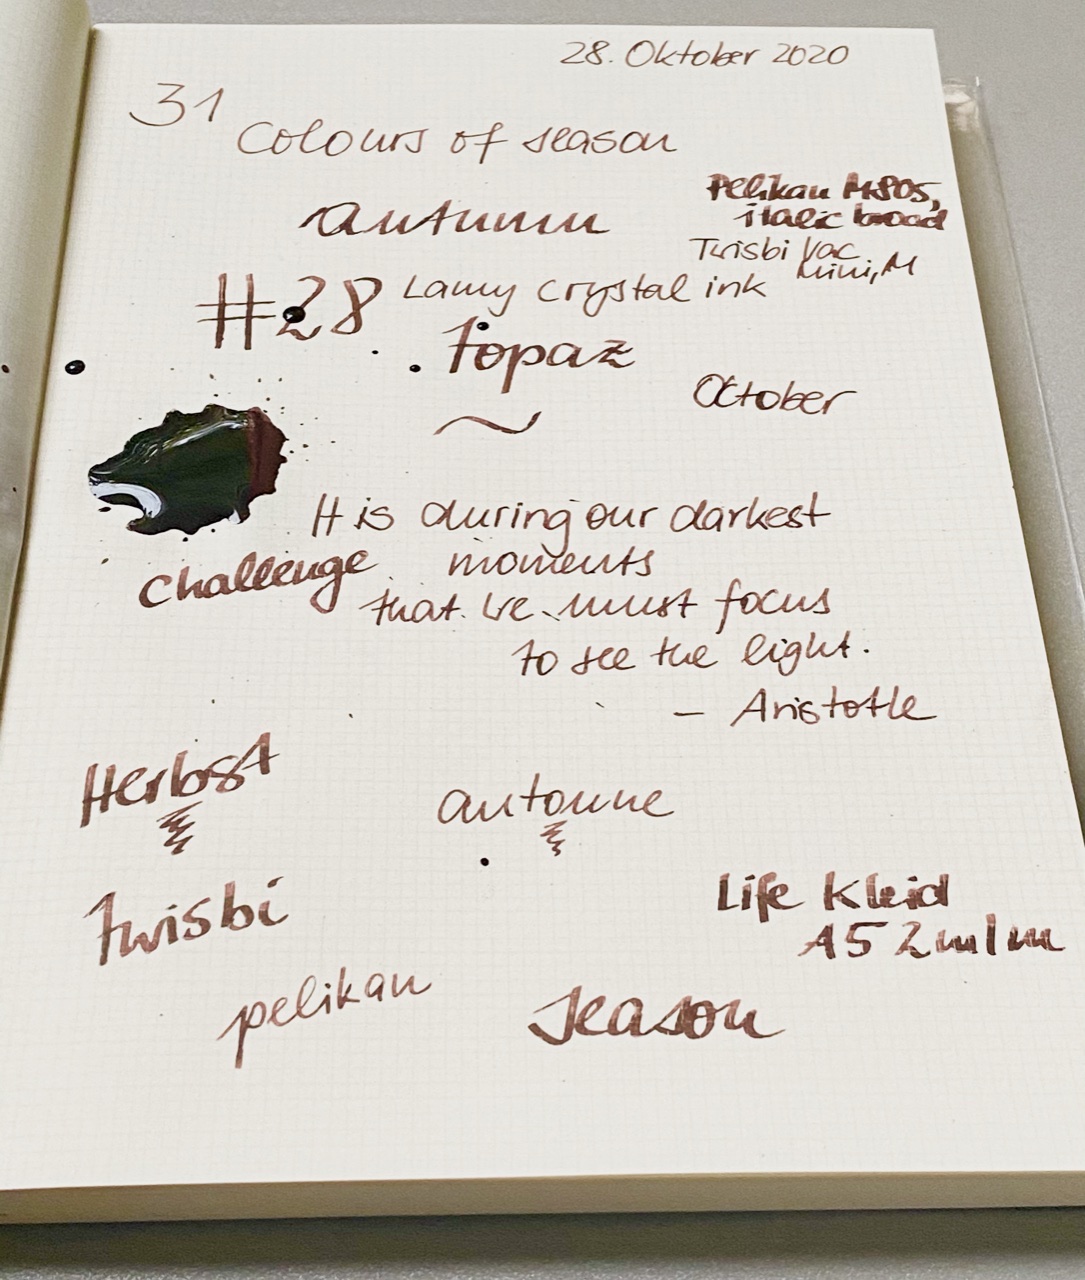 28. Oktober 2020
31
Colours of season
autumn
Pelikan M805,
italic broad
Twisbi Vac
Mini, M
#28 Lamy crystal ink
topaz
October
It is during our darkest
challenge moments
that we must focus
to see the light.
– Aristotle
Herbst
automne
Twisbi
Life Kleid
A5 2m/m
pelikan
season